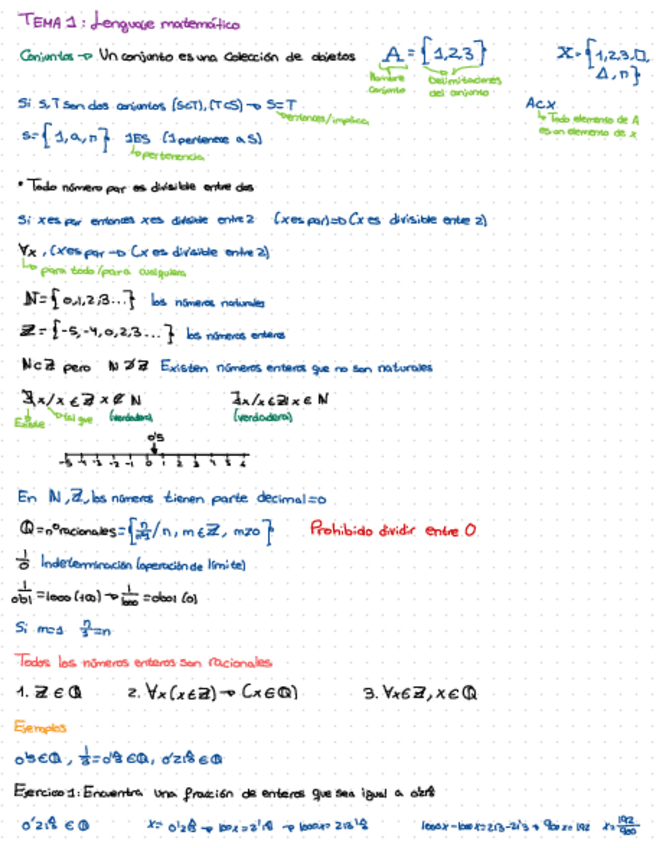 TEMA 1: Lenguaje matemático
Conjuntos → Un conjunto es una colección de objetos A = {1,2,3} X = {1,2,3,□, Δ, n}
Nombre conjunto
Delimitadores del conjunto
Si S,T son dos conjuntos (S⊂T), (T⊂S) → S=T A⊂X
entonces/implica
Todo elemento de A es un elemento de X
S={1,a,n} 1ES (1 pertenece a S)
pertenencia
* Todo número par es divisible entre dos
Si x es par entonces x es divisible entre 2 (x es par) => (x es divisible entre 2)
∀x, (x es par → (x es divisible entre 2)
para todo/para cualquiera
N={0,1,2,3...} los números naturales
Z={-5,-4,0,2,3...} los números enteros
N⊂Z pero N⊅Z Existen números enteros que no son naturales
∃x/x∈Z x∉N ∃x/x∈Z x∈N
Existe tal que (verdadera) (verdadera)
0'5
-5 -4 -3 -2 -1 0 1 2 3 4 5 6
En N,Z, los números tienen parte decimal=0
Q=nº racionales= /n, m∈Z, Prohibido dividir entre 0
1/0 Indeterminación (operación de límite)
=1000 (+∞) → 1/1000 = (0)
Si m=1 =n
Todos los números enteros son racionales
1. Z∈Q 2. ∀x(x∈Z) → (x∈Q) 3. ∀x∈Z, x∈Q
Ejemplos
0'5∈Q, ∈Q, ∈Q
Ejercicio 1: Encuentra una fracción de enteros que sea igual a
∈Q x= → →